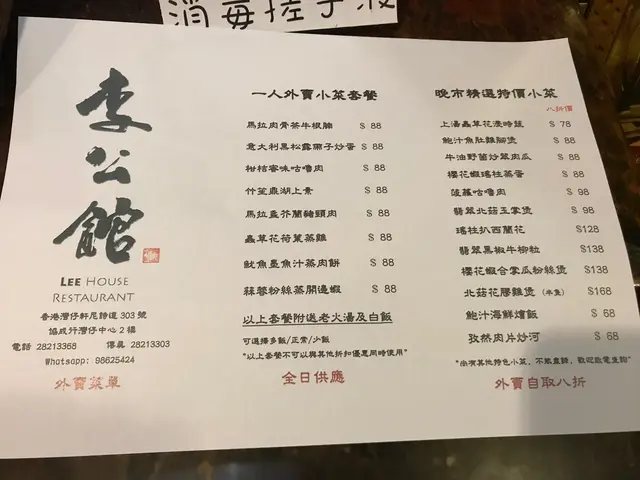 消毒搓手液
李公館
LEE HOUSE
RESTAURANT
香港灣仔軒尼詩道 303 號
協成行灣仔中心 2 樓
電話 28213368 傳真 28213303
Whatsapp: 98625424
外賣菜單
一人外賣小菜套餐
馬拉肉骨茶牛根腩 $ 88
意大利黑松露帶子炒蛋 $ 88
柑桔蜜味咕嚕肉 $ 88
竹笙鼎湖上素 $ 88
馬拉盞芥蘭豬頸肉 $ 88
蟲草花荷葉蒸雞 $ 88
魷魚墨魚汁蒸肉餅 $ 88
蒜蓉粉絲蒸開邊蝦 $ 88
以上套餐附送老火湯及白飯
可選擇多飯/正常/少飯
"以上套餐不可以與其他折扣優惠同時使用"
全日供應
晚市精選特價小菜
八折價
上湯蟲草花浸時蔬 $ 78
鮑汁魚肚雞腳煲 $ 88
牛油野菌炒翠肉瓜 $ 88
櫻花蝦瑤柱蒸蛋 $ 88
菠蘿咕嚕肉 $ 98
翡翠北菇玉掌煲 $ 98
瑤柱扒西蘭花 $128
翡翠黑椒牛柳粒 $138
櫻花蝦合掌瓜粉絲煲 $138
北菇花膠雞煲 (半隻) $168
鮑汁海鮮燴飯 $ 68
孜然肉片炒河 $ 68
"尚有其他特色小菜，不能盡錄，歡迎致電查詢"
外賣自取八折